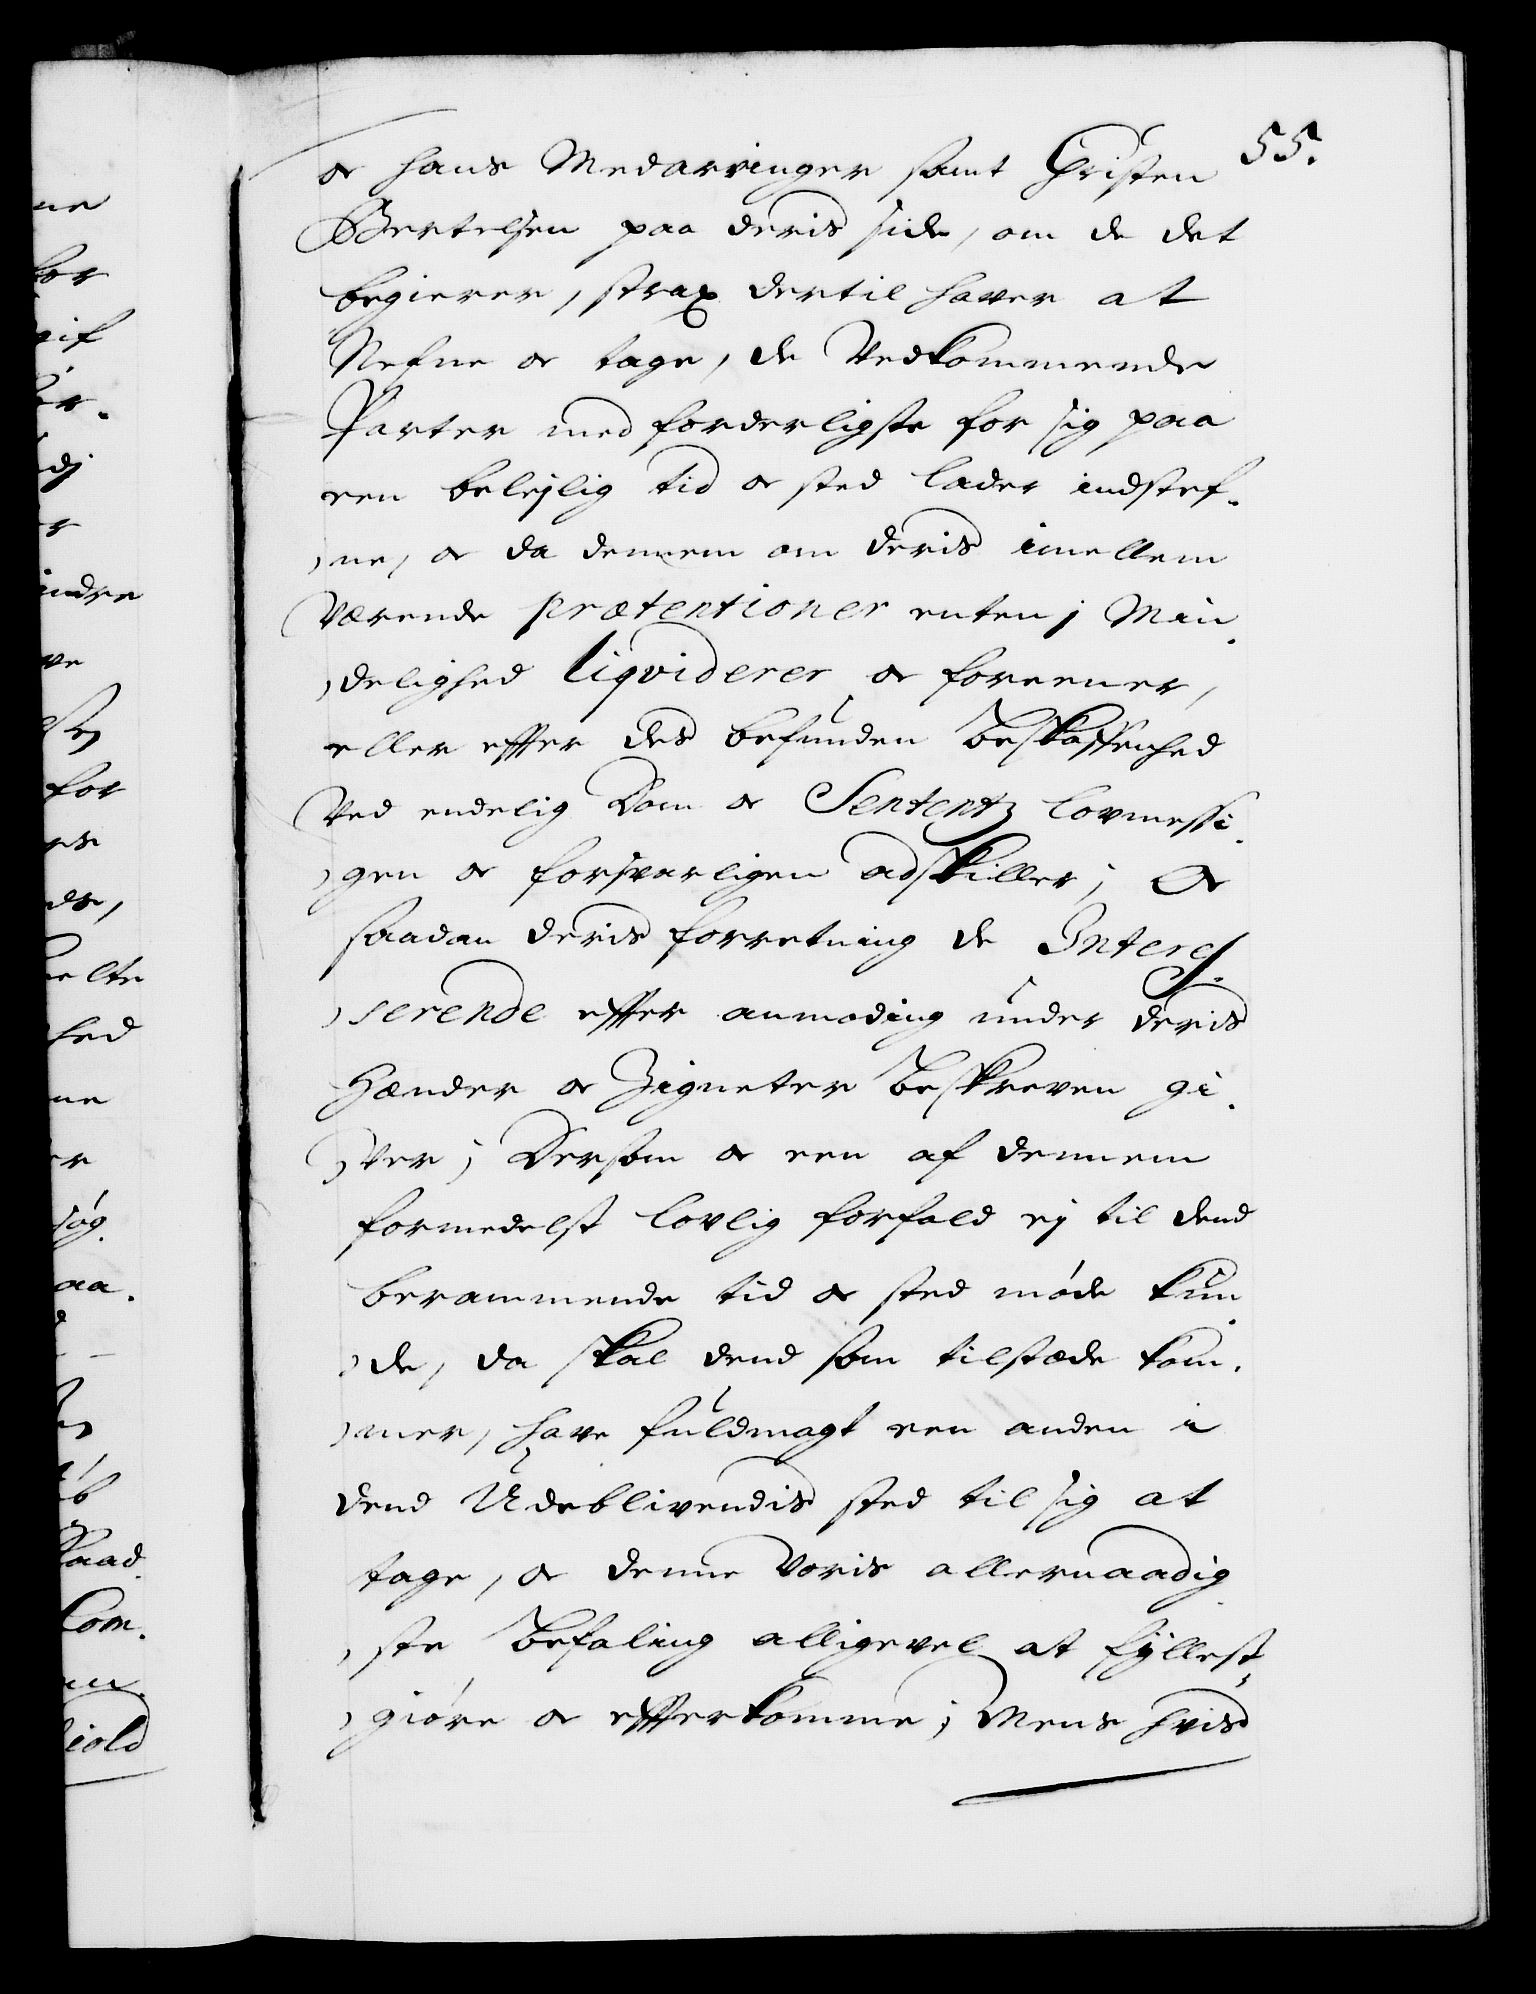 55.
og hans Medarvinger samt Christen
Bertelsen paa deris side, om de det
begierer, strax dertil haver at
Nefne og tage, de Vedkommende
Parter med forderligste for sig paa
een beleylig tid og sted lader indstef-
ne, og da dennem om deris imellem
Værende prætentioner enten j Min-
delighed liqviderer og foreener,
eller effter des befunden Beskaffenhed
Ved endelig Dom og Sententz lovmessi-
gen og forsvarligen adskiller; Og
saadan deris forretning de Interes-
serende effter anmoding under deris
Hænder og Zigneter Beskreven gi-
Ver; Dersom og een af dennem
formedelst lovlig forfald ej til dend
berammende tid og sted møde kun-
de, da skal dend som tilstæde kom-
mer, have fuldmagt een anden i
dend Udeblivendis sted til sig at
tage, og denne Voris allernaadig-
ste Befaling alligevel at fyllest-
giøre og effterkomme; Mens hvis
ne
for
ej
er
indre
ve
for
de,
hed
ne
er
søg.
aa.
Com.
iold